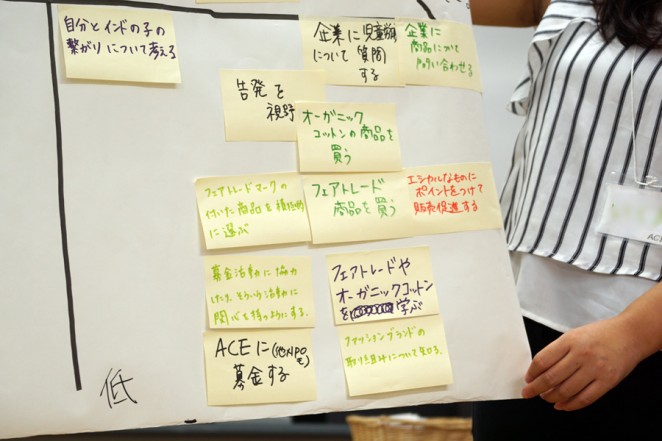 自分とインドの子の
繋がりについて考える
企業に児童労働
について質問
する
企業に
商品について
問い合わせる
告発を
視野
オーガニック
コットンの商品を
買う
フェアトレードマークの
付いた商品を積極的
に選ぶ
フェアトレード
商品を買う
エシカルなものに
ポイントをつけて
販売促進する
募金活動に協力
したり、そういう活動に
関心を持つようにする。
フェアトレードや
オーガニックコットン
を学ぶ
ACEに(他NPOも)
募金する
ファッションブランドの
取り組みについて知る。
低